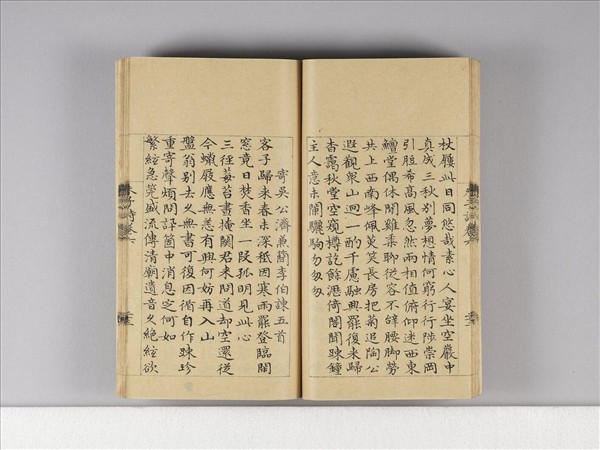 杖屨此日同悠哉素心人宴坐空巖中
真成三秋別夢想情何窮行行陟崇岡
引脰希高風忽然兩相值俯仰迷西東
鱣堂偶休閒雞黍聊從容不辞腰脚勞
共上西南峰佩萸笑長房把菊追陶公
遐觀衆山迥一酌千慮融興罷復来歸
杳靄秋堂空窺樽訖餘瀝倚閣聞踈鐘
主人意未闌驪駒勿匆匆
寄吳公濟兼簡李伯諫五首
客子歸来春未深祗因寒雨罷登臨閉
窓竟日焚香坐一段孤明見此心
三徑莓苔晝掩關君来問道却空還從
今蠟屐應無恙有興何妨再入山
盤翁别去久無書可復因循自作踈珍
重寄聲煩問訊箇中消息定何如
繁絃急筦盛流傳清廟遺音久絶絃欲